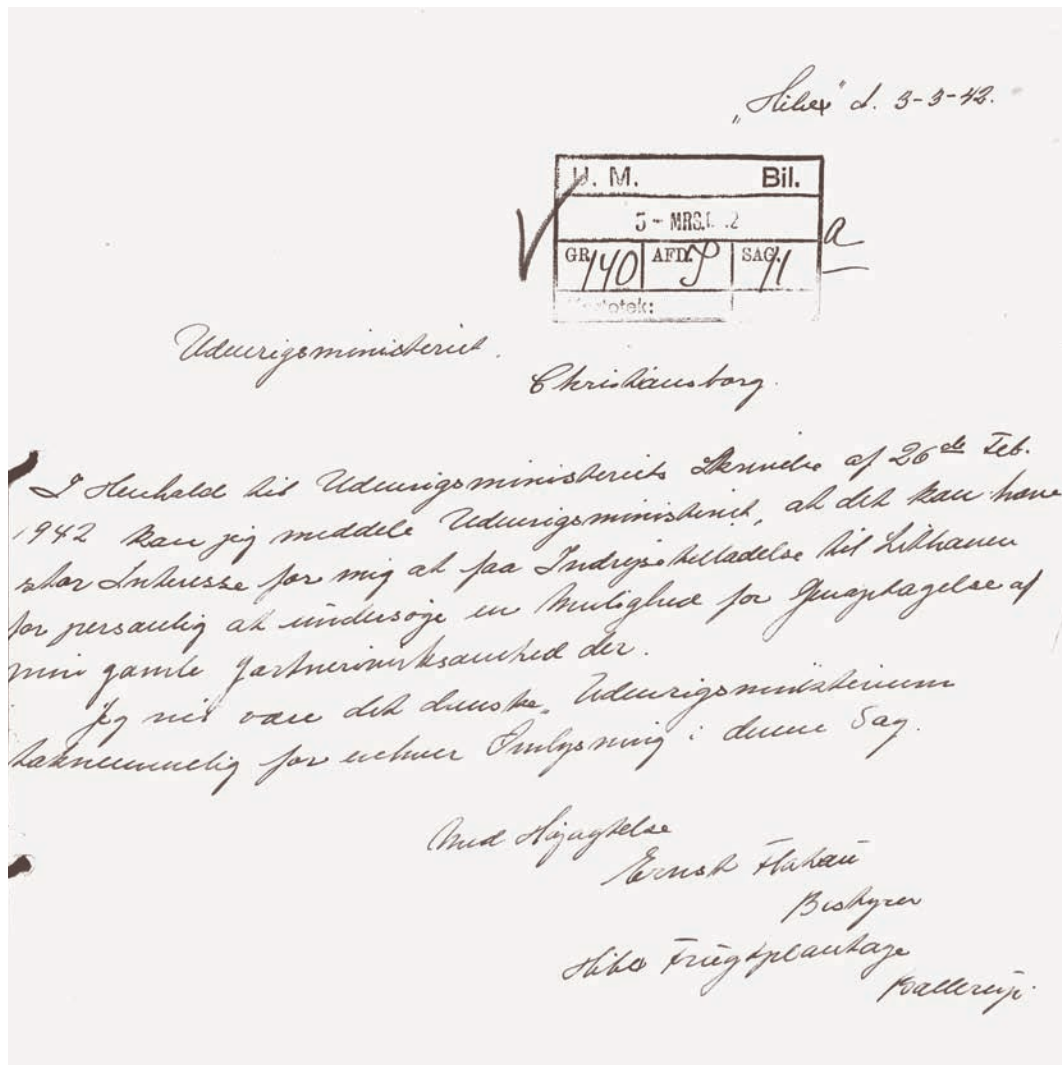 „Hibex" d. 3-3-42.
U. M. Bil.
5 - MRS. 2
GR 140 AFD. P SAG. 11 a
Kartotek:
Udenrigsministeriet.
Christiansborg.
I Henhold til Udenrigsministeriets Skrivelse af 26de Feb.
1942 kan jeg meddele Udenrigsministeriet, at det kan have
stor Interesse for mig at faa Indrejsetilladelse til Lithauen
for personlig at undersøge en Mulighed for Genoptagelse af
min gamle Gartnerivirksomhed der.
Jeg vil være det danske Udenrigsministerium
taknemmelig for enhver Oplysning i denne Sag.
Med Højagtelse
Ernst
Bestyrer
Hibex Frugtplantage
Ballerup.